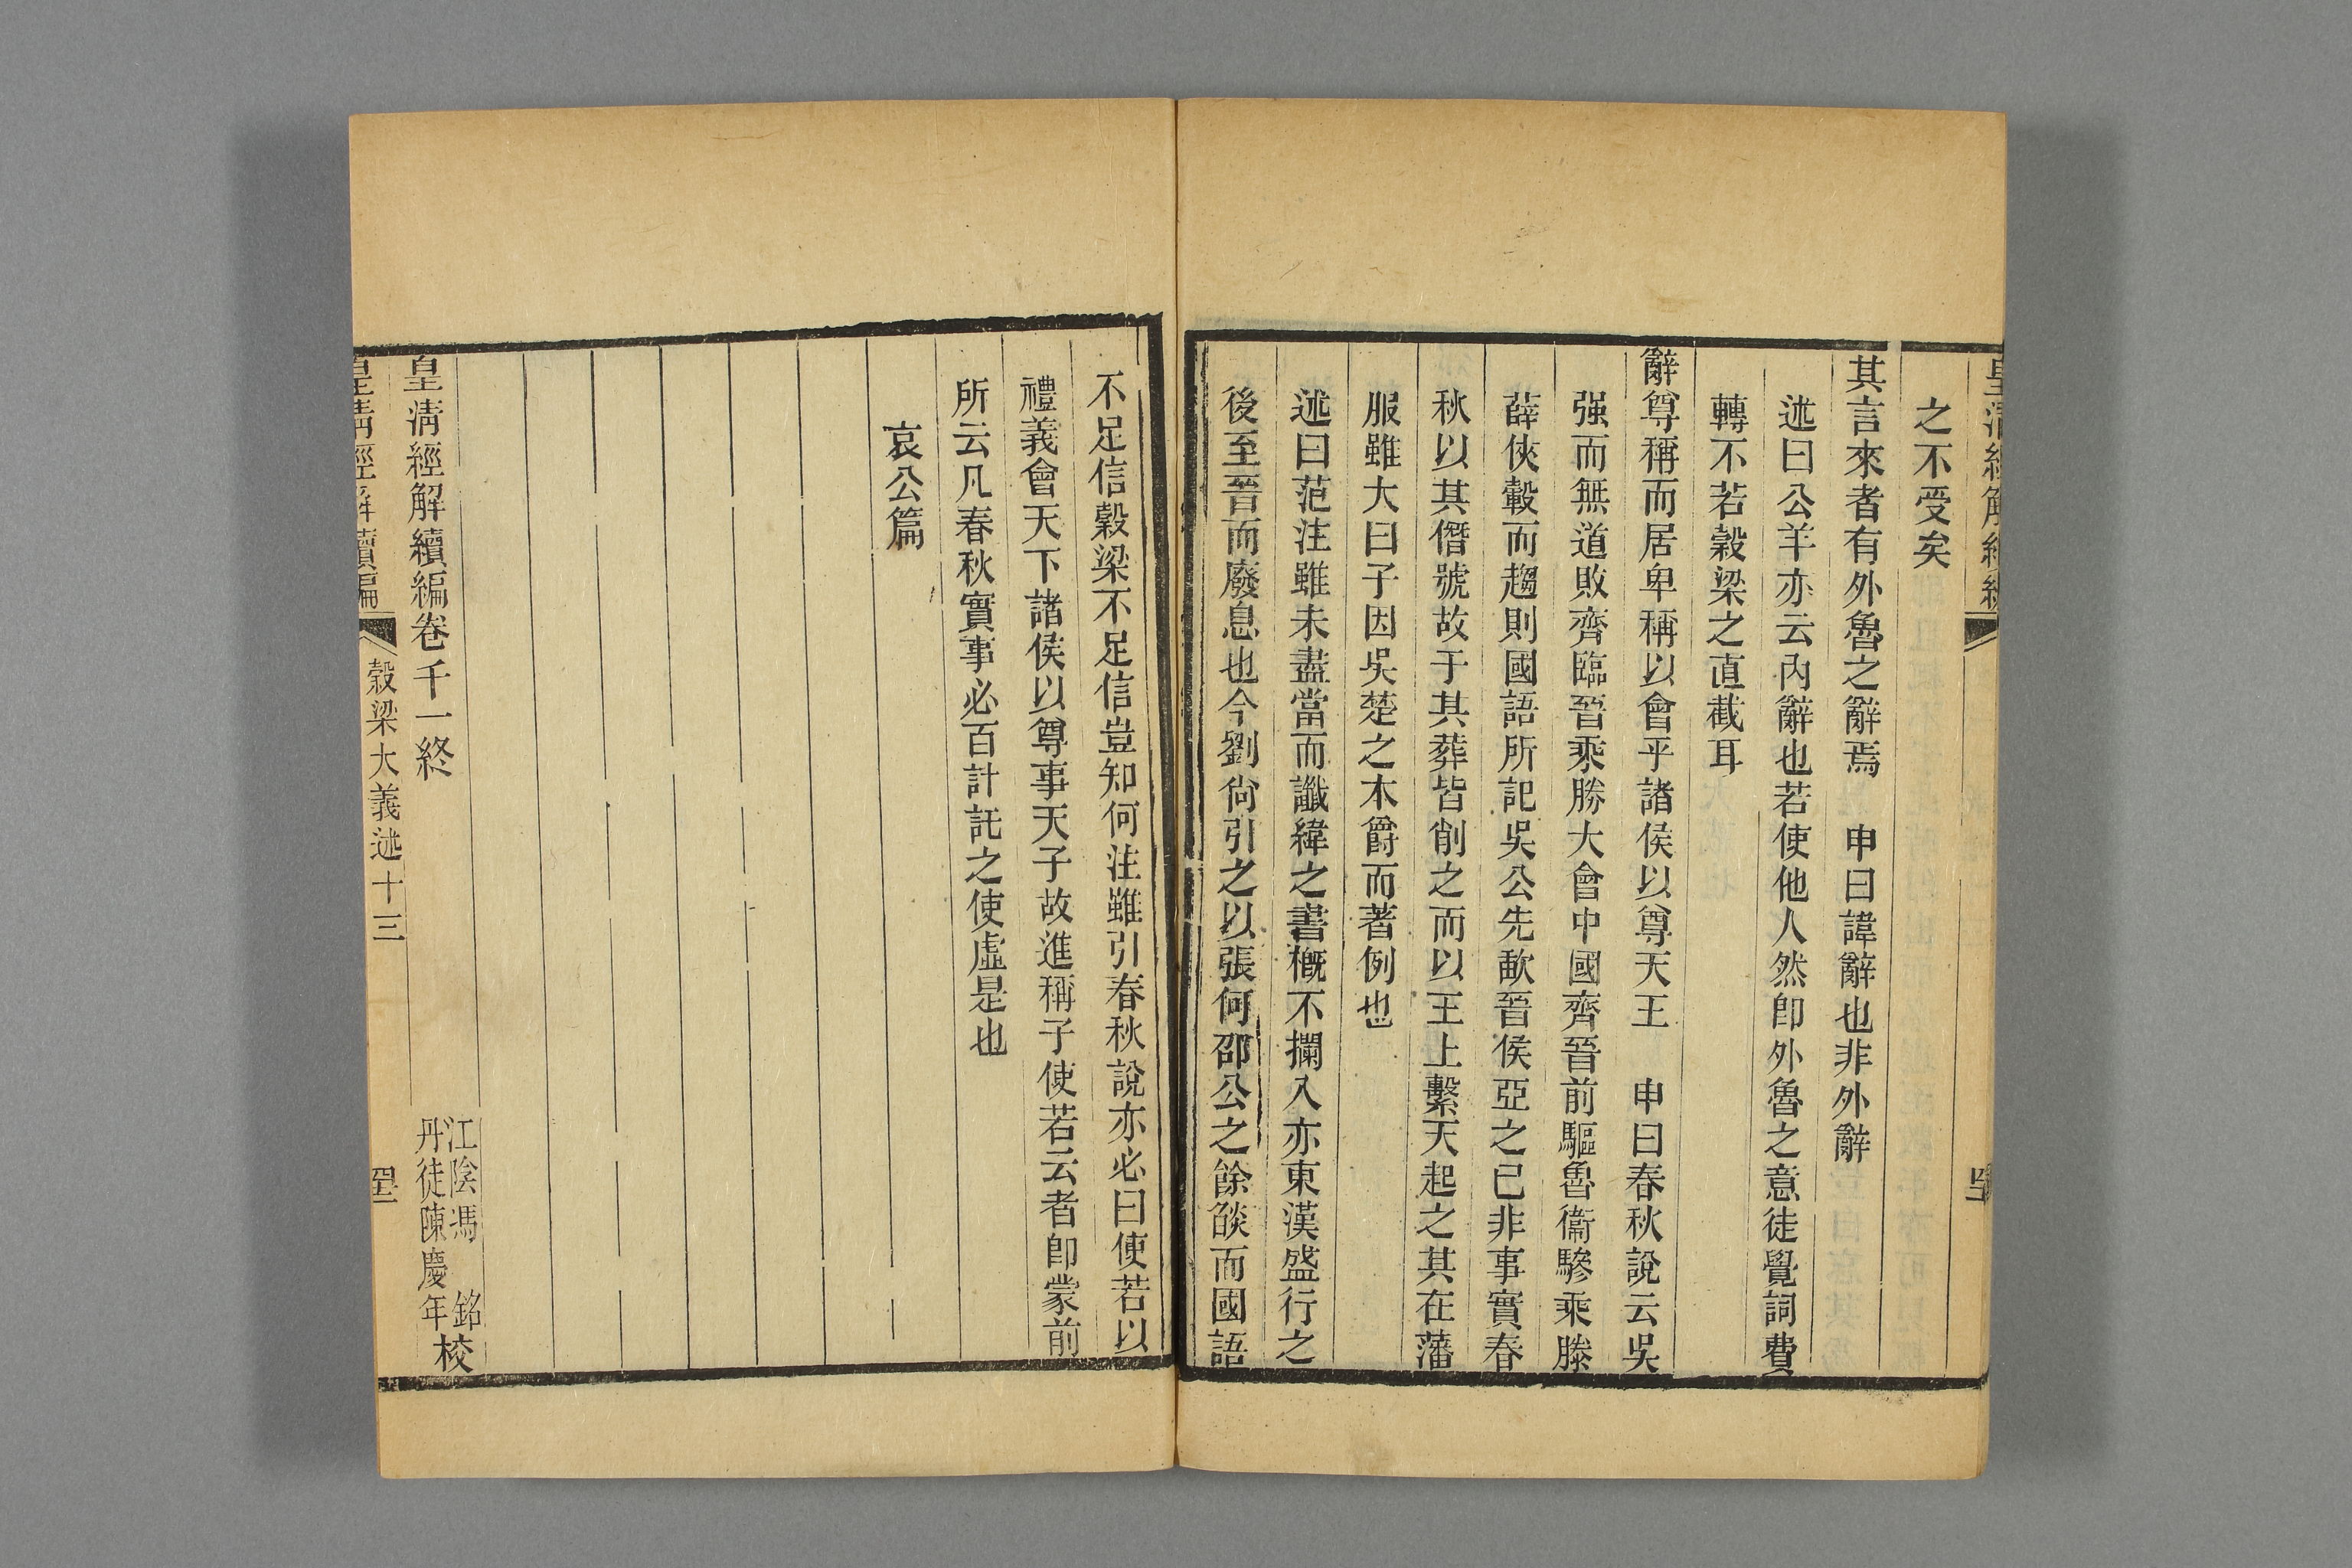 皇清經解續編
之不受矣
其言來者有外魯之辭焉　申曰諱辭也非外辭
述曰公羊亦云內辭也若使他人然卽外魯之意徒覺詞費
轉不若穀梁之直截耳
辭尊稱而居卑稱以會乎諸侯以尊天王　申曰春秋說云吳
强而無道敗齊臨晉乘勝大會中國齊晉前驅魯衞驂乘滕
薛俠轂而趨則國語所記吳公先歃晉侯亞之已非事實春
秋以其僭號故于其葬皆削之而以王上繫天起之其在藩
服雖大曰子因吳楚之木爵而著例也
述曰范注雖未盡當而讖緯之書槪不攔入亦東漢盛行之
後至晉而廢息也今劉尙引之以張何邵公之餘燄而國語
不足信穀梁不足信豈知何注雖引春秋說亦必曰使若以
禮義會天下諸侯以尊事天子故進稱子使若云者卽蒙前
所云凡春秋實事必百計託之使虛是也
哀公篇
皇淸經解續編卷千一終
江陰馮　銘
丹徒陳慶年校
皇淸經解續編　穀梁大義述十三